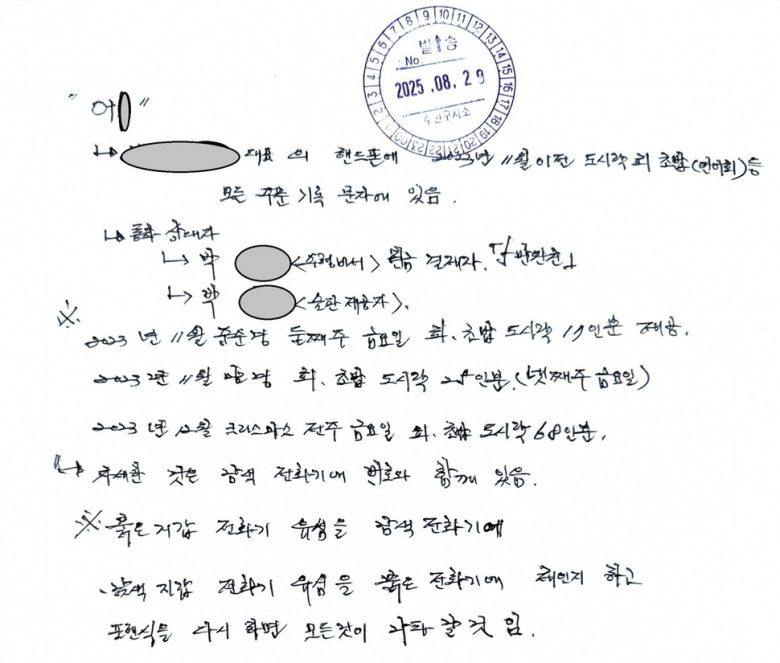 발송
No
2025.08.29
구치소
" 어 "
대표의 핸드폰에 2023년 11월 이전 도시락 회 초밥(연어회)등
모든 주문 기록 문자에 있음.
통화 상대자
박 <수행비서> 현금 결제자.
박 <술판 제공자>.
※
2023년 11월 중순경 둘째주 금요일 회.초밥 도시락 인분 제공.
2023년 11월 말경 회.초밥 도시락 28인분.(넷째주 금요일)
2023년 12월 크리스마스 전주 금요일 회.초밥 도시락 68인분.
자세한 것은 검색 전화기에 번호와 함께 있음.
※ 붉은 지갑 전화기 유심을 검색 전화기에
. 검색 지갑 전화기 유심을 붉은 전화기에 체인지 하고
포렌식을 다시 하면 모든것이 나타 날 것 임.